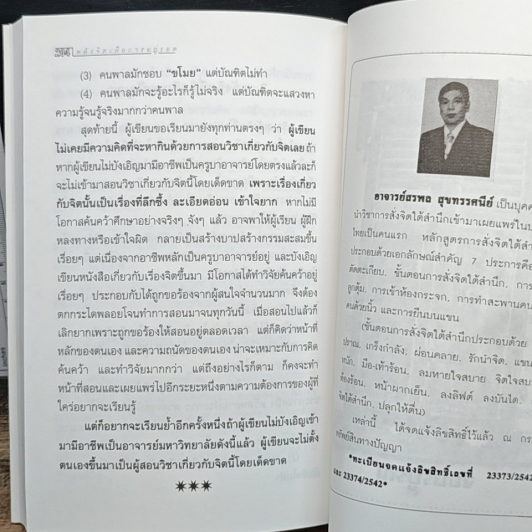 (3) คนพาลมักชอบ "ขโมย" แต่บัณฑิตไม่ทำ
(4) คนพาลมักจะรู้อะไรก็รู้ไม่จริง แต่บัณฑิตจะแสวงหา
ความรู้จนรู้จริงมากกว่าคนพาล
สุดท้ายนี้ ผู้เขียนขอเรียนมายังทุกท่านตรงๆ ว่า ผู้เขียน
ไม่เคยมีความคิดที่จะหากินด้วยการสอนวิชาเกี่ยวกับจิตเลย ถ้า
หากผู้เขียนไม่บังเอิญมามีอาชีพเป็นครูบาอาจารย์โดยตรงแล้วละก็
จะไม่เข้ามาสอนวิชาเกี่ยวกับจิตนี้โดยเด็ดขาด เพราะเรื่องเกี่ยว
กับจิตนั้นเป็นเรื่องที่ลึกซึ้ง ละเอียดอ่อน เข้าใจยาก หากไม่มี
โอกาสค้นคว้าศึกษาอย่างจริงๆ จังๆ แล้ว อาจพาให้ผู้เรียน ผู้ฝึก
หลงทางหรือเข้าใจผิด กลายเป็นสร้างบาปสร้างกรรมสะสมขึ้น
เรื่อยๆ แต่เนื่องจากอาชีพหลักเป็นครูบาอาจารย์อยู่ และบังเอิญ
เขียนหนังสือเกี่ยวกับเรื่องจิตขึ้นมา มีโอกาสได้ทำวิจัยค้นคว้าอยู่
เรื่อยๆ ประกอบกับได้ถูกขอร้องจากผู้สนใจจำนวนมาก จึงต้อง
ตกกระไดพลอยโจนทำการสอนมาจนทุกวันนี้ เมื่อสอนไปแล้วก็
เลิกยากเพราะถูกขอร้องให้สอนอยู่ตลอดเวลา แต่ก็คิดว่าหน้าที่
หลักของตนเอง และความถนัดของตนเอง น่าจะเหมาะกับการคิด
ค้นคว้า และทำวิจัยมากกว่า แต่ถึงอย่างไรก็ตาม ก็คงจะทำ
หน้าที่สอนและเผยแพร่ไปอีกระยะหนึ่งตามความต้องการของผู้ที่
ใคร่อยากจะเรียนรู้
แต่ก็อยากจะเรียนย้ำอีกครั้งหนึ่งถ้าผู้เขียนไม่บังเอิญเข้า
มามีอาชีพเป็นอาจารย์มหาวิทยาลัยดังนี้แล้ว ผู้เขียนจะไม่ตั้ง
ตนเองขึ้นมาเป็นผู้สอนวิชาเกี่ยวกับจิตนี้โดยเด็ดขาด
อาจารย์สรพล สุขทรรศนีย์ เป็นบุคค
นำวิชาการสั่งจิตใต้สำนึกเข้ามาเผยแพร่ในป
ไทยเป็นคนแรก หลักสูตรการสั่งจิตใต้สำ
ประกอบด้วยเอกลักษณ์สำคัญ 7 ประการคือ
ตัดตะเกียบ. ขั้นตอนการสั่งจิตใต้สำนึก. การ
ลูกตุ้ม. การเข้าห้องกระจก. การทำสะพานคน
คนด้วยนิ้ว และการยืนบนแขน
(ขั้นตอนการสั่งจิตใต้สำนึกประกอบด้วย
ปราณ. เกร็งกำลัง. ผ่อนคลาย. รักนำจิต. แขน
หนัก. มือ-เท้าร้อน. ลมหายใจสบาย จิตใจสบ
ท้องร้อน. หน้าผากเย็น. ลงลิฟต์ ลงบันได.
จิตใต้สำนึก. ปลุกให้ตื่น)
เหล่านี้ ได้จดแจ้งลิขสิทธิ์ไว้แล้ว ณ กร
ทรัพย์สินทางปัญญา
*ทะเบียนจดแจ้งลิขสิทธิ์เลขที่ 23373/2542
และ 23374/2542*